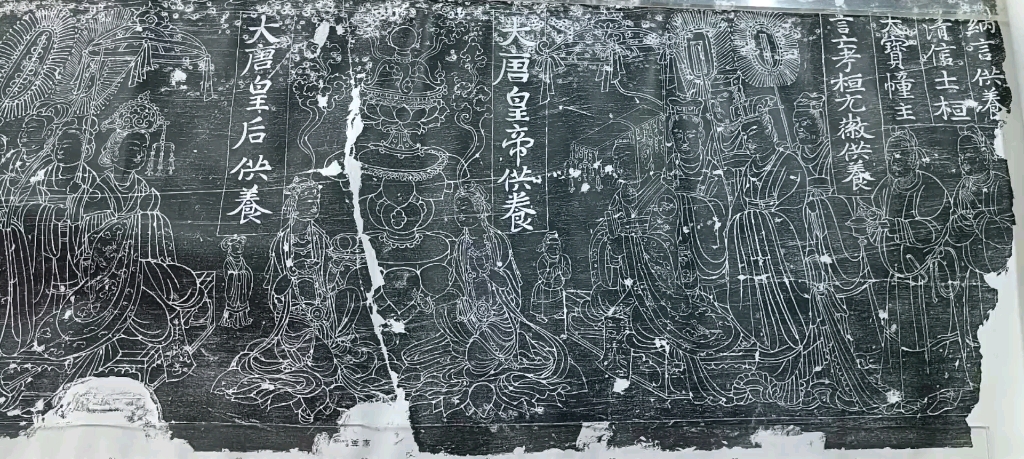 納言供養
清信士桓
大寶幢主
考桓元徽供養
大唐皇帝供養
大唐皇后供養